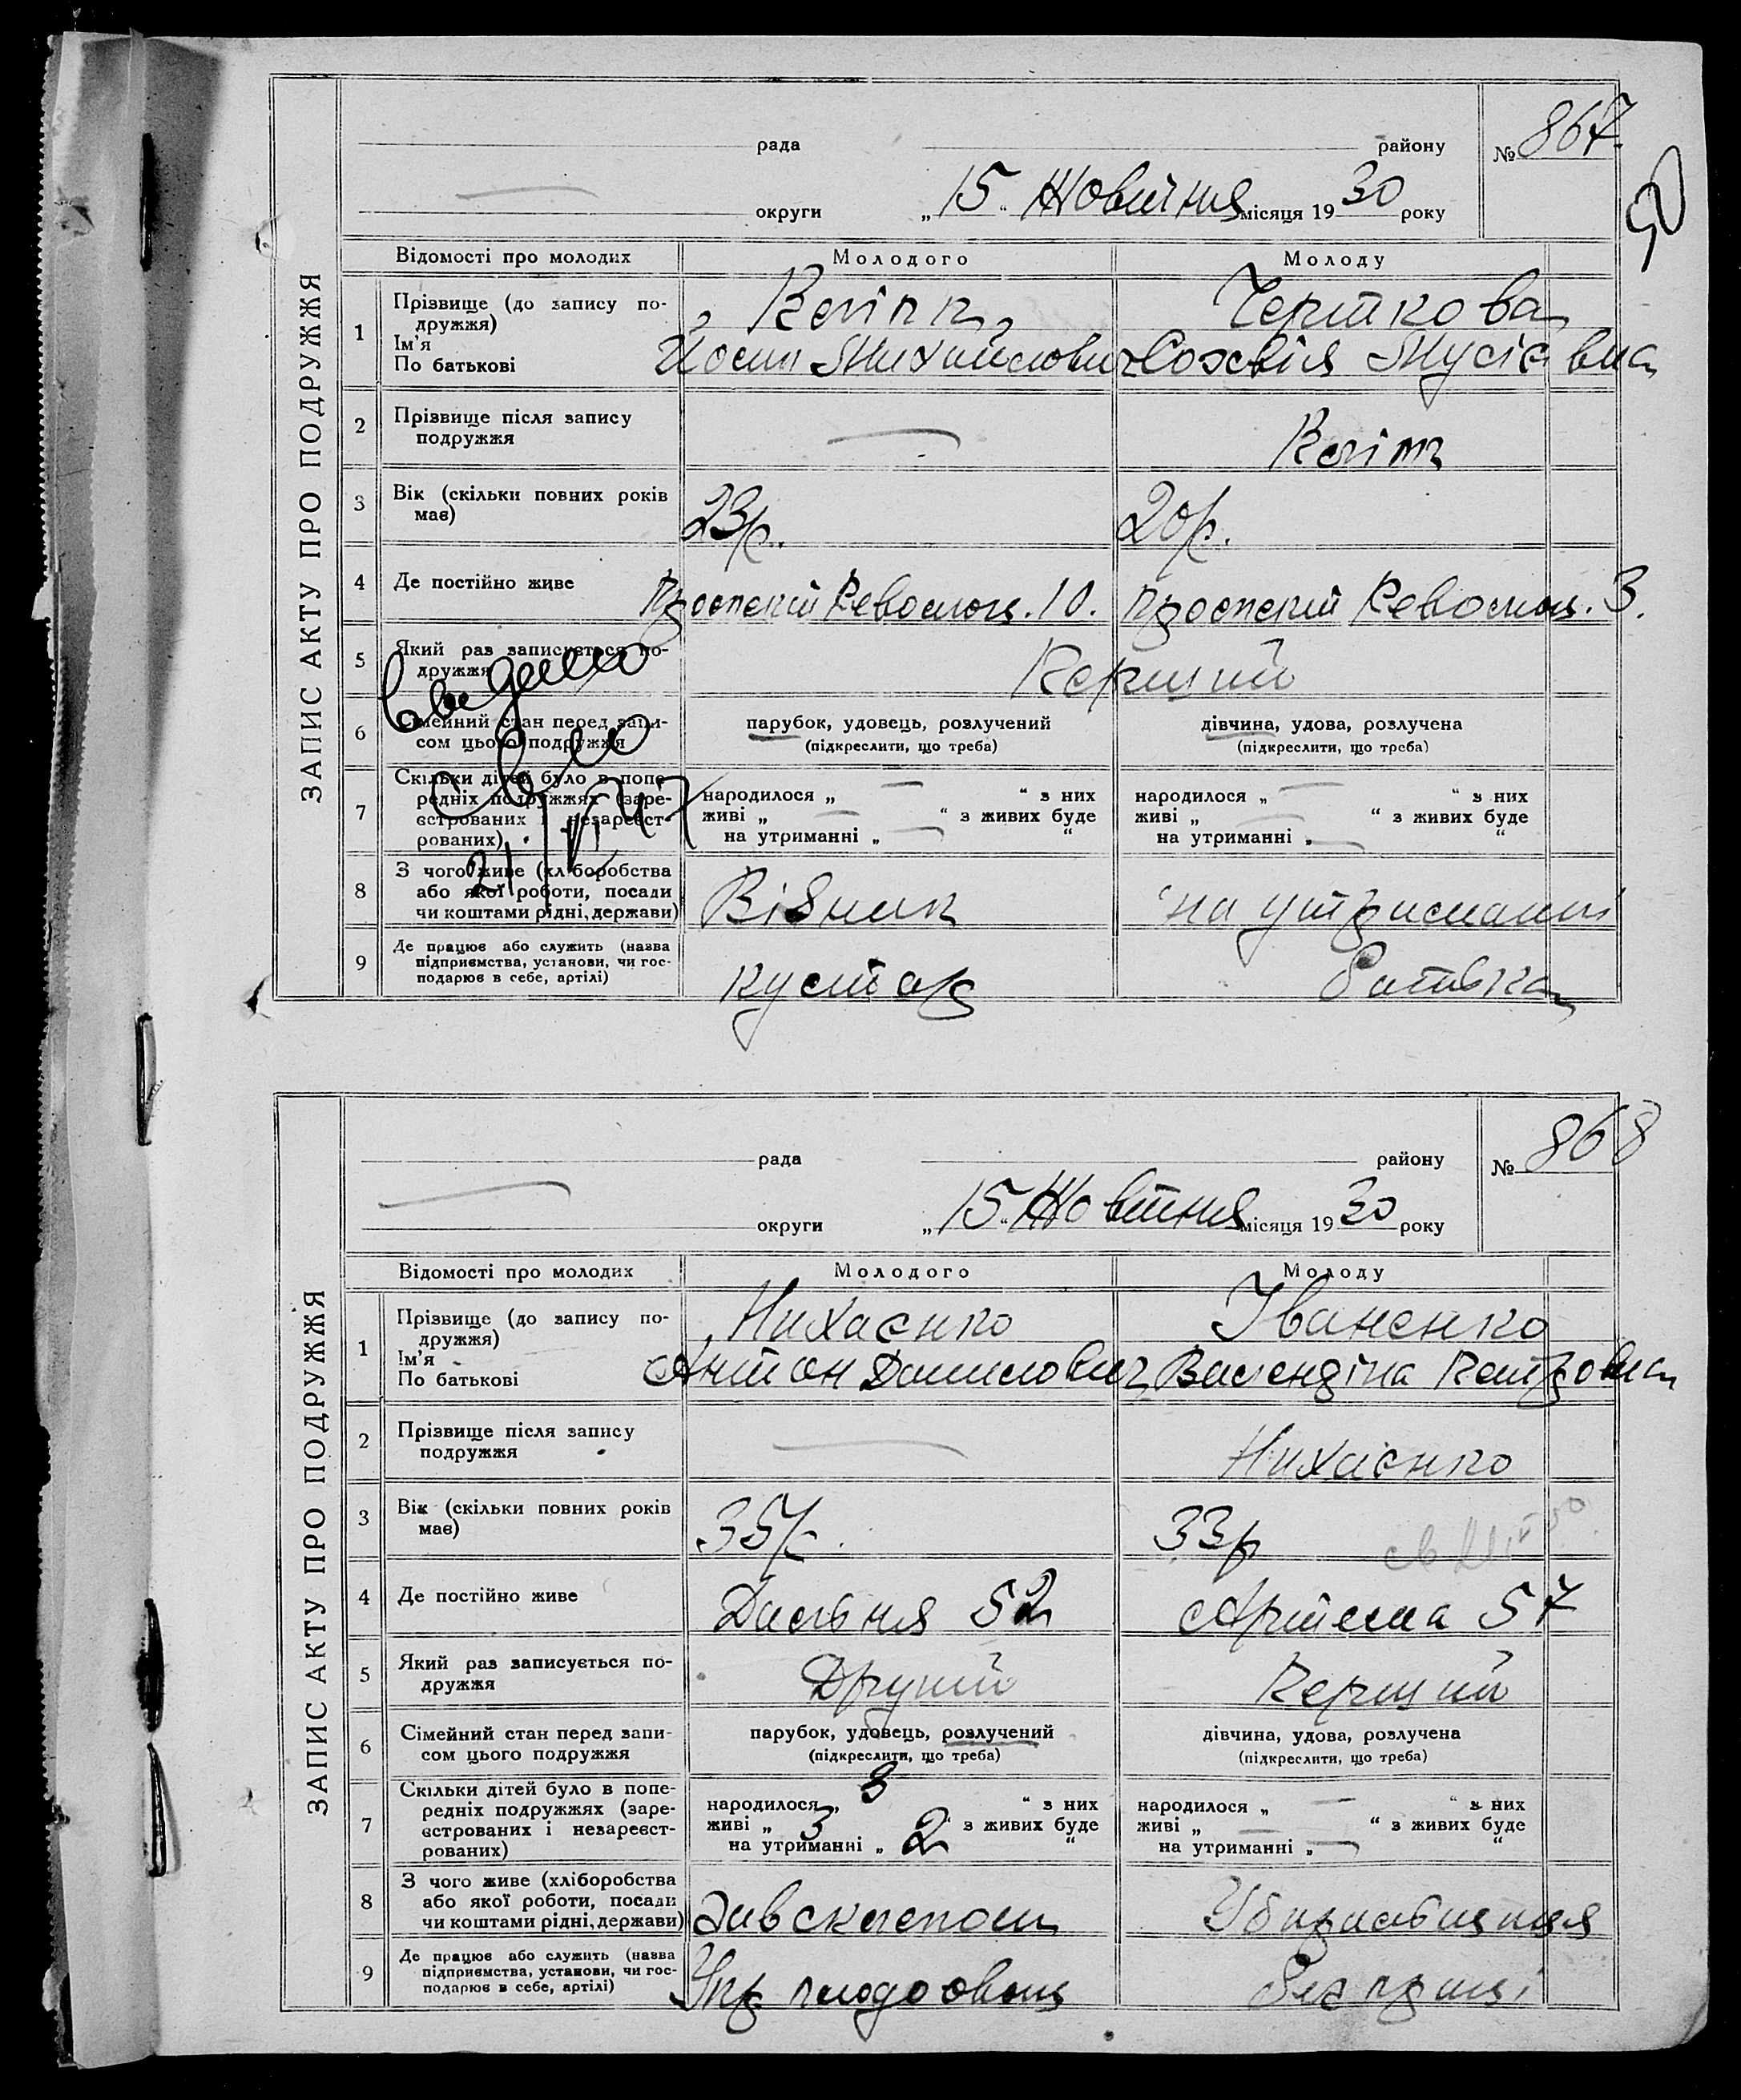 ЗАПИС АКТУ ПРО ПОДРУЖЖЯ
рада району № 867
округи „15“ Жовтня місяця 1930 року
50
Відомості про молодих Молодого Молоду
1 Прізвище (до запису по-
дружжя)
Ім'я
По батькові
Черткова
Йосип Михайлович Софія Мусіївна
2 Прізвище після запису
подружжя
3 Вік (скільки повних років
має)
23 р. 20 р.
4 Де постійно живе
Проспект Революц. 10. Проспект Революц. 3.
5 Який раз записується по-
дружжя
Перший
6 Сімейний стан перед запи-
сом цього подружжя
парубок, удовець, розлучений дівчина, удова, розлучена
(підкреслити, що треба) (підкреслити, що треба)
7 Скільки дітей було в попе-
редніх подружжях (заре-
єстрованих і незареєст-
рованих)
народилося „ “ з них народилося „ “ з них
живі „ “ з живих буде живі „ “ з живих буде
на утриманні „ “ на утриманні „ “
8 З чого живе (хліборобства
або якої роботи, посади
чи коштами рідні, держави)
Візник на утриманні
9 Де працює або служить (назва
підприємства, установи, чи гос-
подарює в себе, артілі)
кустар Батька
ЗАПИС АКТУ ПРО ПОДРУЖЖЯ
рада району № 868
округи „15“ Жовтня місяця 1930 року
Відомості про молодих Молодого Молоду
1 Прізвище (до запису по-
дружжя)
Ім'я
По батькові
Нихаєнко Іваненко
Антон Данилович Валендіна Петровна
2 Прізвище після запису
подружжя
Нихаєнко
3 Вік (скільки повних років
має)
35 р. 33 р
4 Де постійно живе
Дальня 52 Артема 57
5 Який раз записується по-
дружжя
Другий Перший
6 Сімейний стан перед запи-
сом цього подружжя
парубок, удовець, розлучений дівчина, удова, розлучена
(підкреслити, що треба) (підкреслити, що треба)
7 Скільки дітей було в попе-
редніх подружжях (заре-
єстрованих і незареєст-
рованих)
народилося „ 3 “ з них народилося „ “ з них
живі „ 3 “ з живих буде живі „ “ з живих буде
на утриманні „ 2 “ на утриманні „ “
8 З чого живе (хліборобства
або якої роботи, посади
чи коштами рідні, держави)
Завскладом Убиральщиця
9 Де працює або служить (назва
підприємства, установи, чи гос-
подарює в себе, артілі)
Укр плодоовощ Без праці